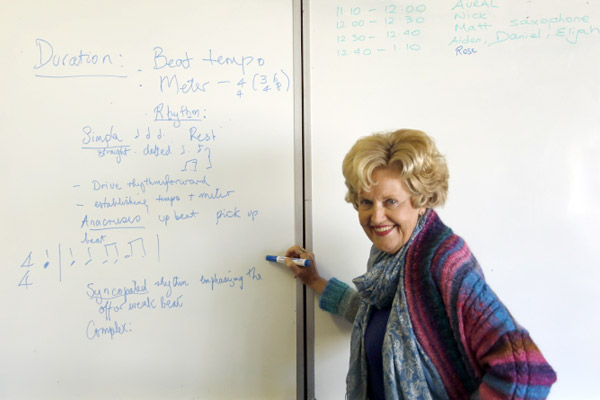 Duration: - Beat tempo
: Meter - 4/4 (3/4 6/8)
Rhythm:
Simple Rest
straight - dotted
- Drive rhythm forward
- establishing tempo + meter
Anacrusis up beat pick up
beat
4
4
Syncopated rhythm emphasizing the
off or weak beat
Complex:
11.10 - 12:00
12.00 - 12 30 Nick
12.30 - 12 40 Matt saxophone
12 40 - 1.10 Aidan, Daniel, Elijah
Rose